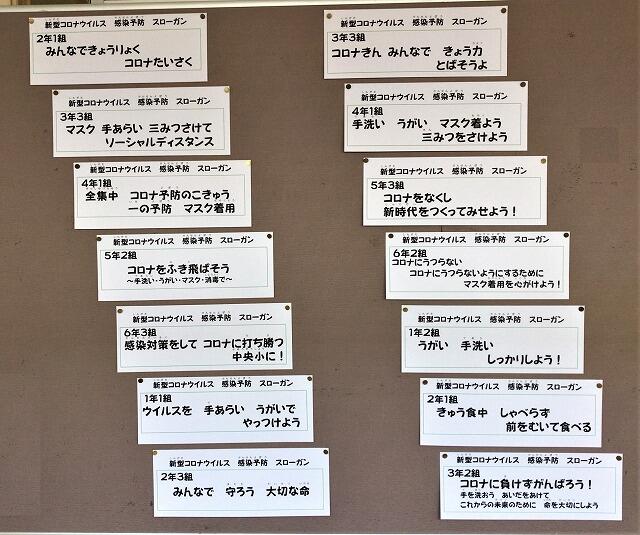 新型コロナウイルス 感染予防 スローガン
2年1組
みんなできょうりょく
コロナたいさく
新型コロナウイルス 感染予防 スローガン
3年3組
マスク 手あらい 三みつさけて
ソーシャルディスタンス
新型コロナウイルス 感染予防 スローガン
4年1組
全集中 コロナ予防のこきゅう
一の予防 マスク着用
新型コロナウイルス 感染予防 スローガン
5年2組
コロナをふき飛ばそう
～手洗い・うがい・マスク・消毒で～
新型コロナウイルス 感染予防 スローガン
6年3組
感染対策をして コロナに打ち勝つ
中央小に!
新型コロナウイルス 感染予防 スローガン
1年1組
ウイルスを 手あらい うがいで
やっつけよう
新型コロナウイルス 感染予防 スローガン
2年3組
みんなで 守ろう 大切な命
新型コロナウイルス 感染予防 スローガン
3年3組
コロナきん みんなで きょう力
とばそうよ
新型コロナウイルス 感染予防 スローガン
4年1組
手洗い うがい マスク着よう
三みつをさけよう
新型コロナウイルス 感染予防 スローガン
5年3組
コロナをなくし
新時代をつくってみせよう!
新型コロナウイルス 感染予防 スローガン
6年2組
コロナにうつらない
コロナにうつらないようにするために
マスク着用を心がけよう!
新型コロナウイルス 感染予防 スローガン
1年2組
うがい 手洗い
しっかりしよう!
新型コロナウイルス 感染予防 スローガン
2年1組
きゅう食中 しゃべらず
前をむいて食べる
新型コロナウイルス 感染予防 スローガン
3年2組
コロナに負けずがんばろう!
手を洗おう あいだをあけて
これからの未来のために 命を大切にしよう